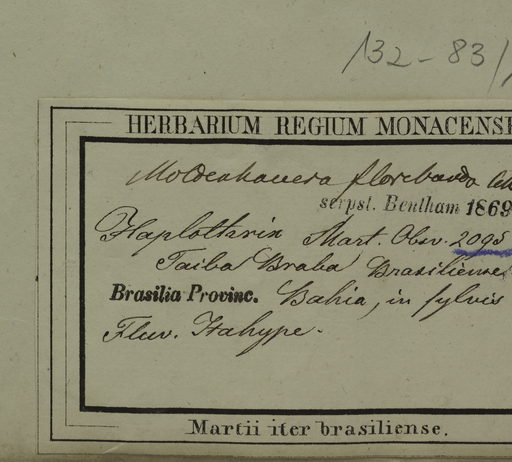 132-83/
HERBARIUM REGIUM MONACENSE
Moldenhauera floribunda
serpst. Bentham 1869
Haplothrix Mart. Obs. 2095
Taiba Braba Brasilienses
Brasilia Provinc. Bahia, in sylvis
Fluv. Itahype.
Martii iter brasiliense.